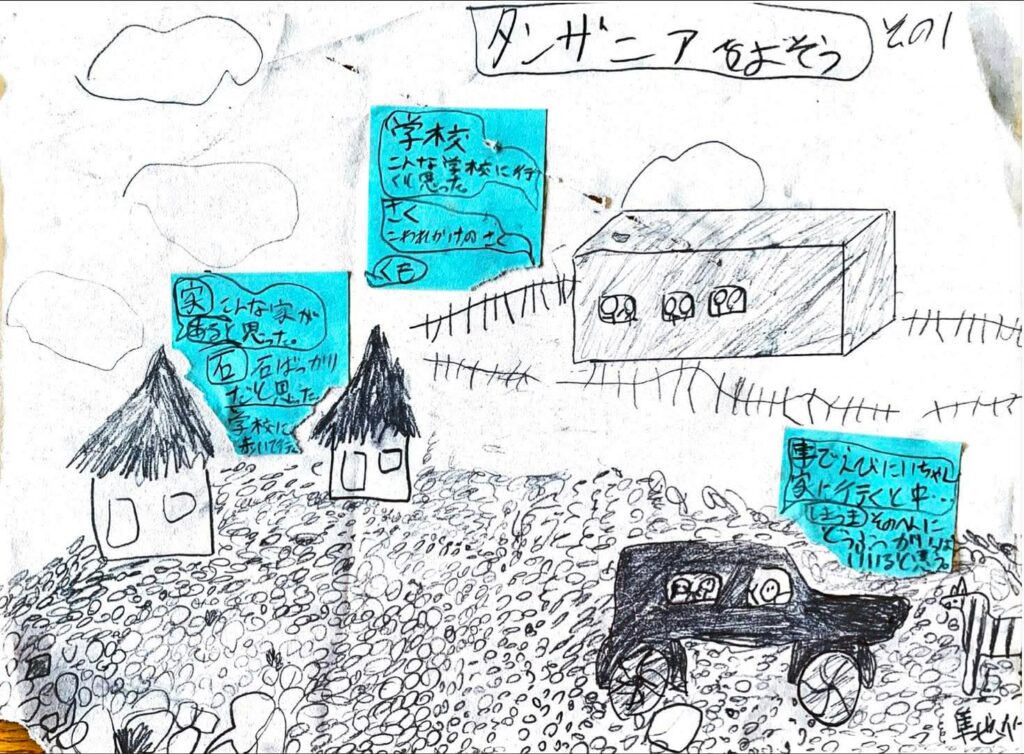 タンザニアをよそう
その1
学校
こんな学校に行
くと思った。
さく
こわれかけのさく
くも
家 こんな家が
あると思った。
石 石ばっかり
だと思った
学校に
歩いて行
車でえびにいちゃん
家に行くと中…
しまうま そのへんに
どうぶつが
いると思う。